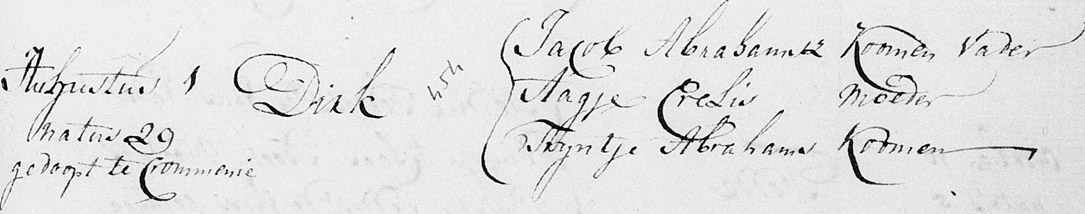 Augustus 1
natus 29
gedoopt te Crommenie
Dirk
Jacob Abrahamsz Koomen Vader
Aagje Crelis Moeder
Tryntje Abrahams Koomen